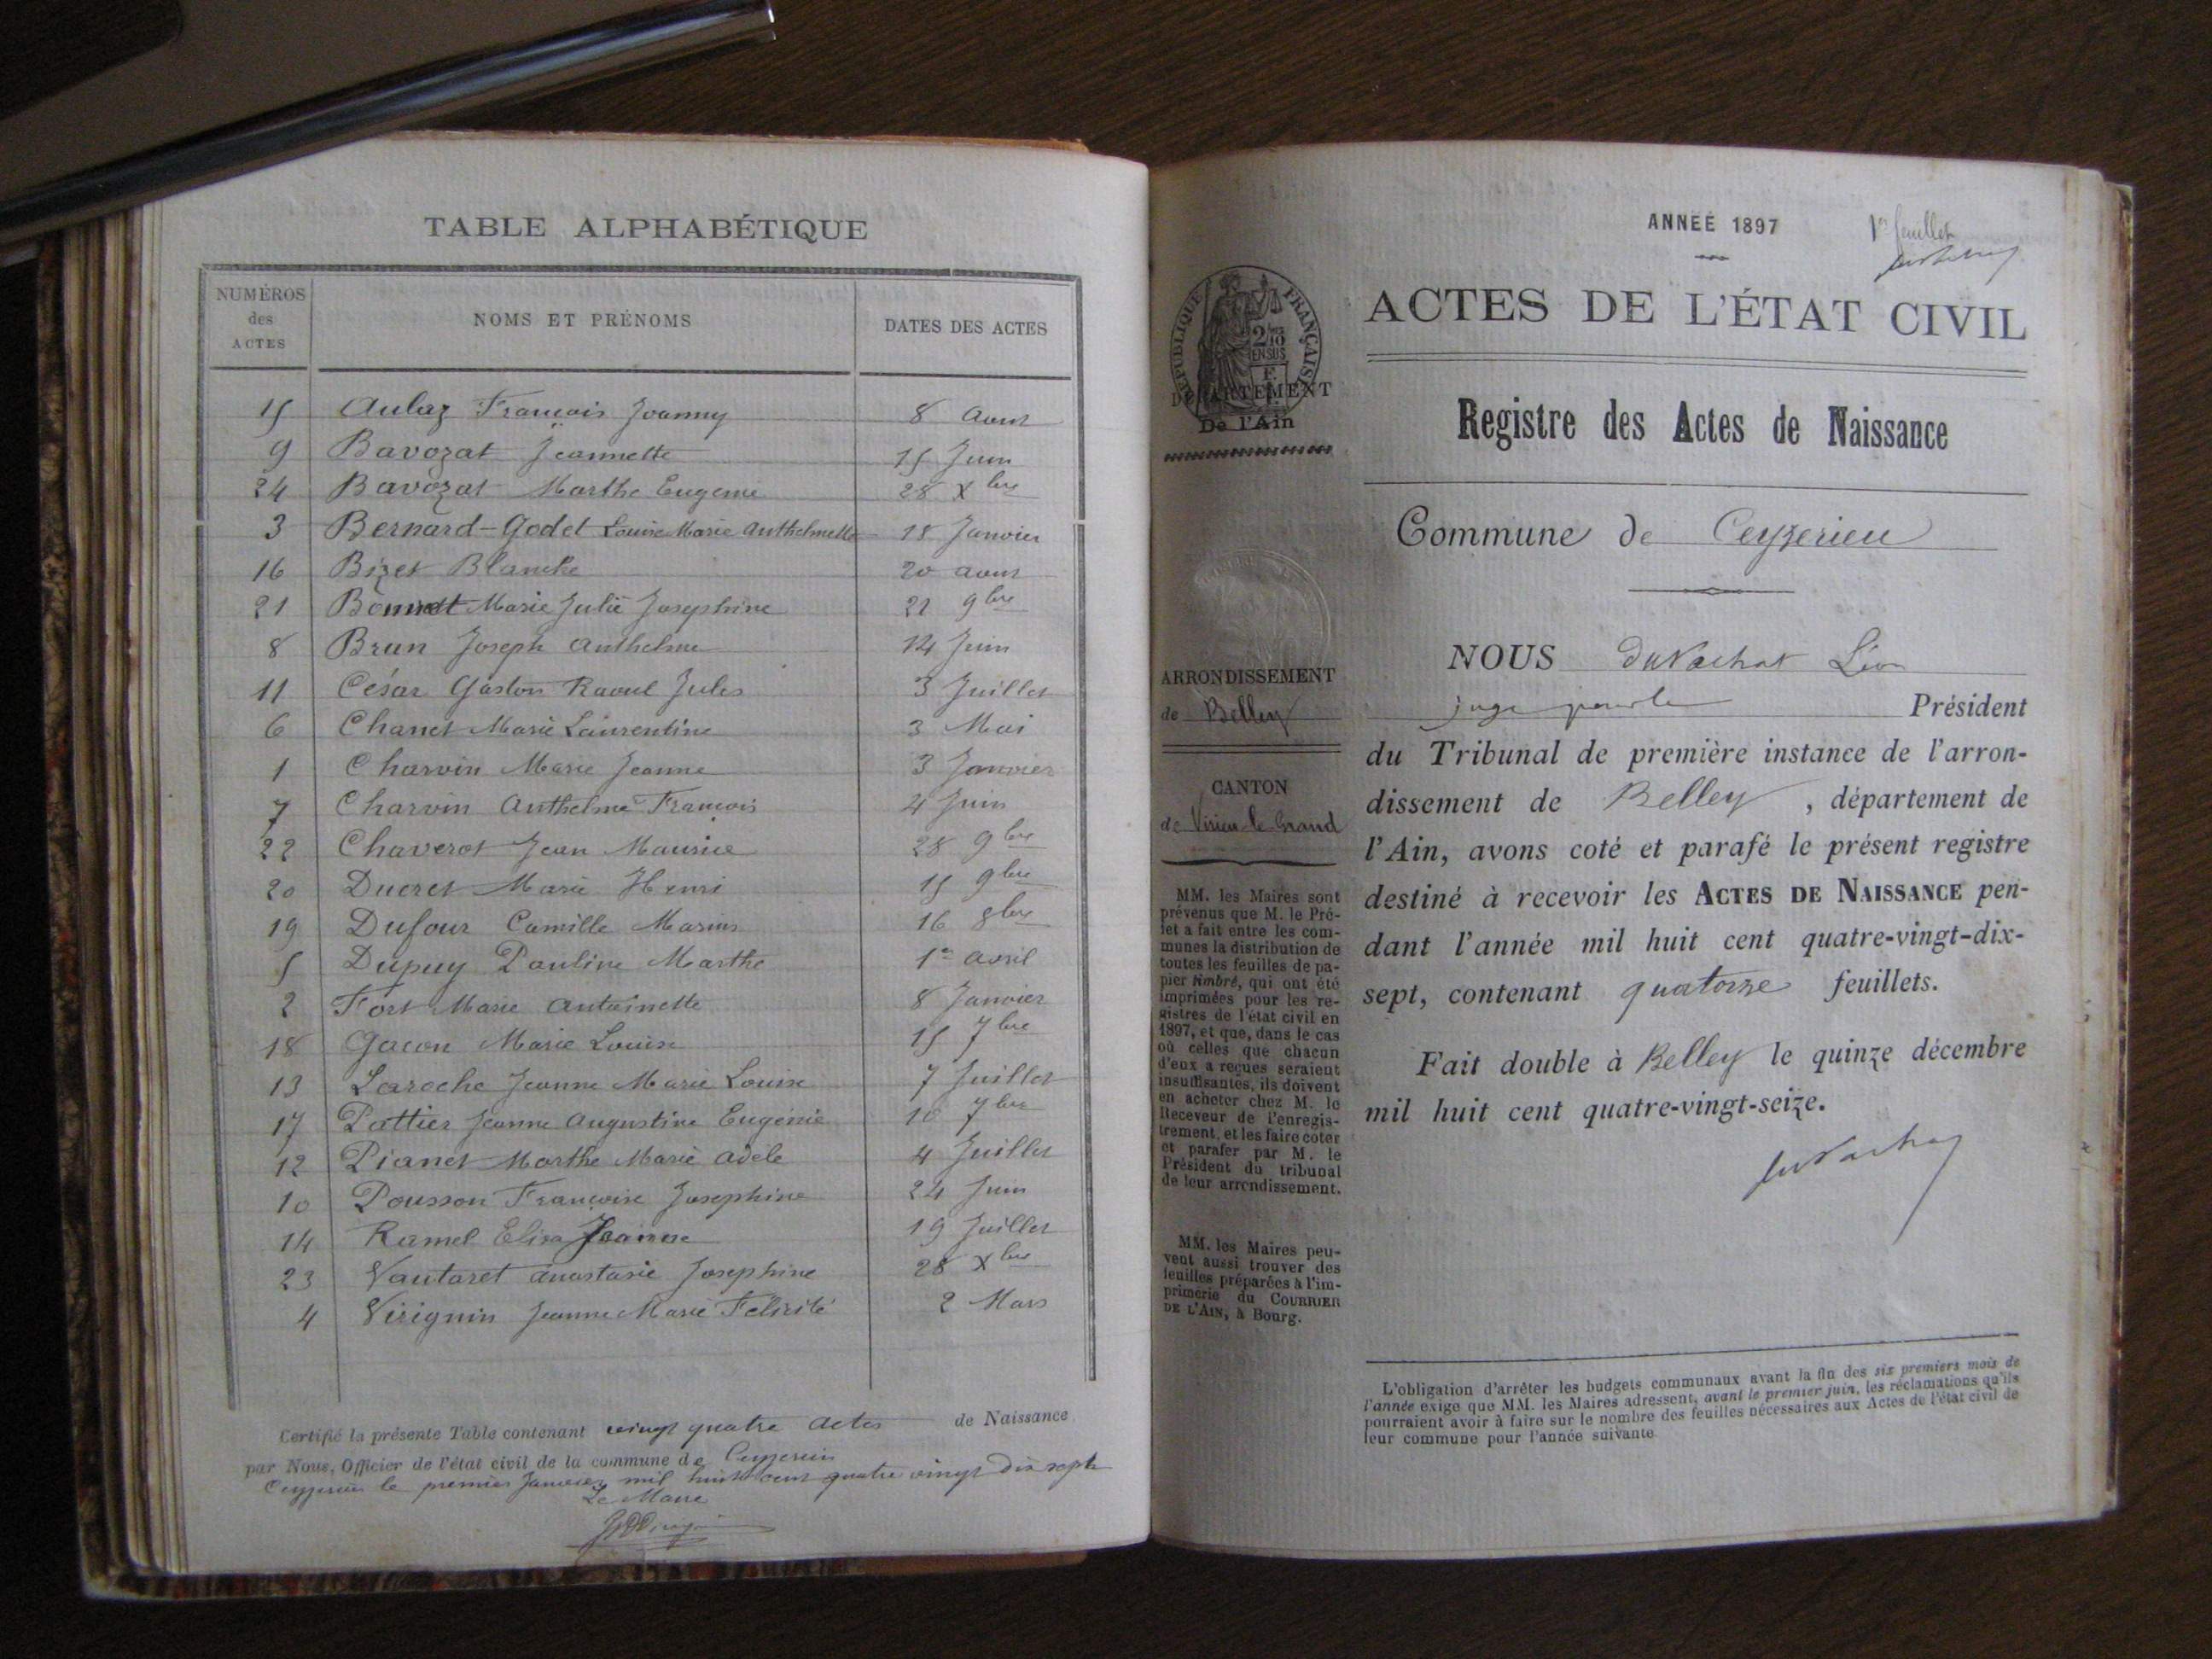 TABLE ALPHABÉTIQUE
NUMÉROS des ACTES NOMS ET PRÉNOMS DATES DES ACTES
15 Aulaz François Joanny 8 Aout
9 Bavozat Jeannette 15 Juin
24 Bavozat Marthe Eugenie 28 Xbre
3 Bernard-Godet Louise Marie Anthelmette 18 Janvier
16 Bizet Blanche 20 aout
21 Bonnet Marie Julie Josephine 22 9bre
8 Brun Joseph Anthelme 14 Juin
11 César Gaston Raoul Jules 3 Juillet
6 Chanet Marie Laurentine 3 Mai
1 Charvin Marie Jeanne 3 Janvier
7 Charvin Anthelme François 4 Juin
22 Chaverot Jean Maurice 28 9bre
20 Ducret Marie Henri 15 9bre
19 Dufour Camille Marius 16 8bre
5 Dupuy Pauline Marthe 1er avril
2 Fort Marie Antoinette 8 Janvier
18 Gacon Marie Louise 15 7bre
13 Laroche Jeanne Marie Louise 7 Juillet
17 Pattier Jeanne Augustine Eugénie 10 7bre
12 Pianet Marthe Marie Adèle 4 Juillet
10 Pousson Françoise Josephine 24 Juin
14 Ramel Elisa Jeanne 19 Juillet
23 Vautaret Anastasie Josephine 28 Xbre
4 Virignin Jeanne Marie Félicité 2 Mars
Certifié la présente Table contenant vingt quatre actes de Naissance
par Nous, Officier de l'état civil de la commune de Ceyzerieu
Ceyzerieu le premier Janvier mil huit cent quatre vingt dix sept
Le Maire
ANNÉE 1897
1er feuillet
ACTES DE L'ÉTAT CIVIL
Registre des Actes de Naissance
Commune de Ceyzerieu
NOUS duVachat Léon
juge pour le Président
du Tribunal de première instance de l'arron-
dissement de Belley, département de
l'Ain, avons coté et parafé le présent registre
destiné à recevoir les ACTES DE NAISSANCE pen-
dant l'année mil huit cent quatre-vingt-dix-
sept, contenant quatorze feuillets.
Fait double à Belley le quinze décembre
mil huit cent quatre-vingt-seize.
duVachat
L'obligation d'arrêter les budgets communaux avant la fin des six premiers mois de
l'année exige que MM. les Maires adressent, avant le premier juin, les réclamations qu'ils
pourraient avoir à faire sur le nombre des feuilles nécessaires aux Actes de l'état civil de
leur commune pour l'année suivante.
RÉPUBLIQUE FRANÇAISE
DÉPARTEMENT
De l'Ain
ARRONDISSEMENT
de Belley
CANTON
de Virieu le Grand
MM. les Maires sont
prévenus que M. le Pré-
fet a fait entre les com-
munes la distribution de
toutes les feuilles de pa-
pier timbré, qui ont été
imprimées pour les re-
gistres de l'état civil en
1897, et que, dans le cas
où celles que chacun
d'eux a reçues seraient
insuffisantes, ils doivent
en acheter chez M. le
Receveur de l'enregis-
trement, et les faire coter
et parafer par M. le
Président du tribunal
de leur arrondissement.
MM. les Maires peu-
vent aussi trouver des
feuilles préparées à l'im-
primerie du COURRIER
DE L'AIN, à Bourg.